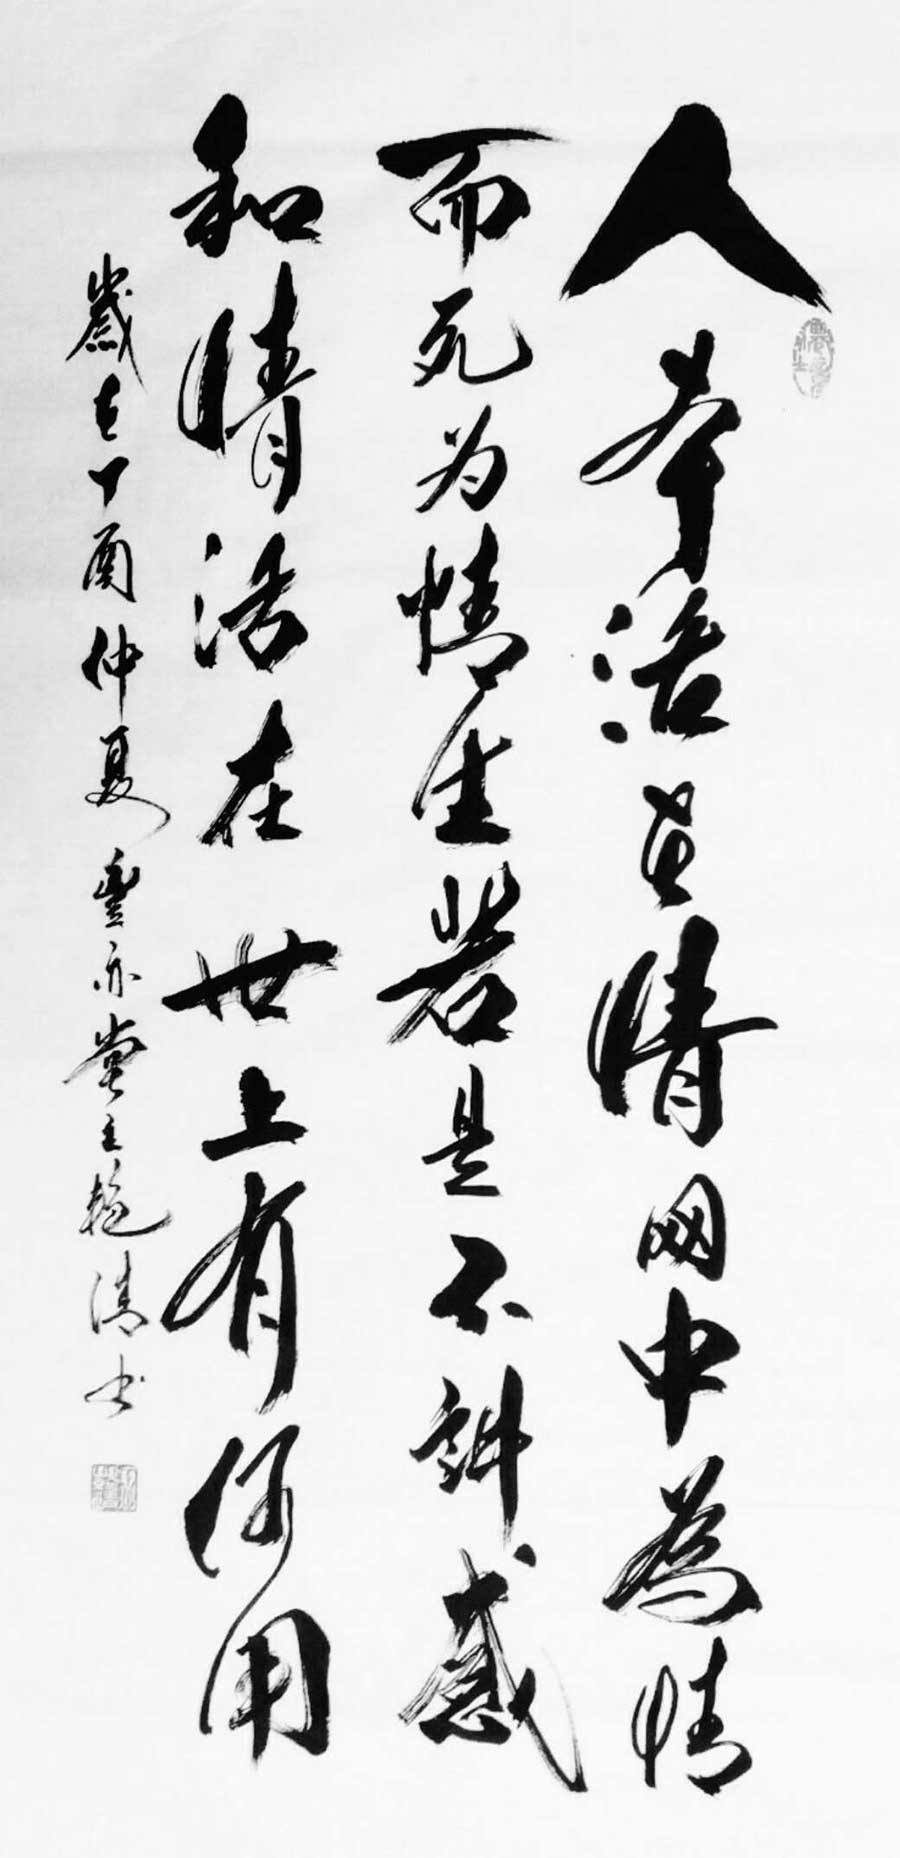 人本活情网中為情
而死为情生若是不讲感
和情活在世上有何用
歲在丁酉仲夏豐亦堂主清书